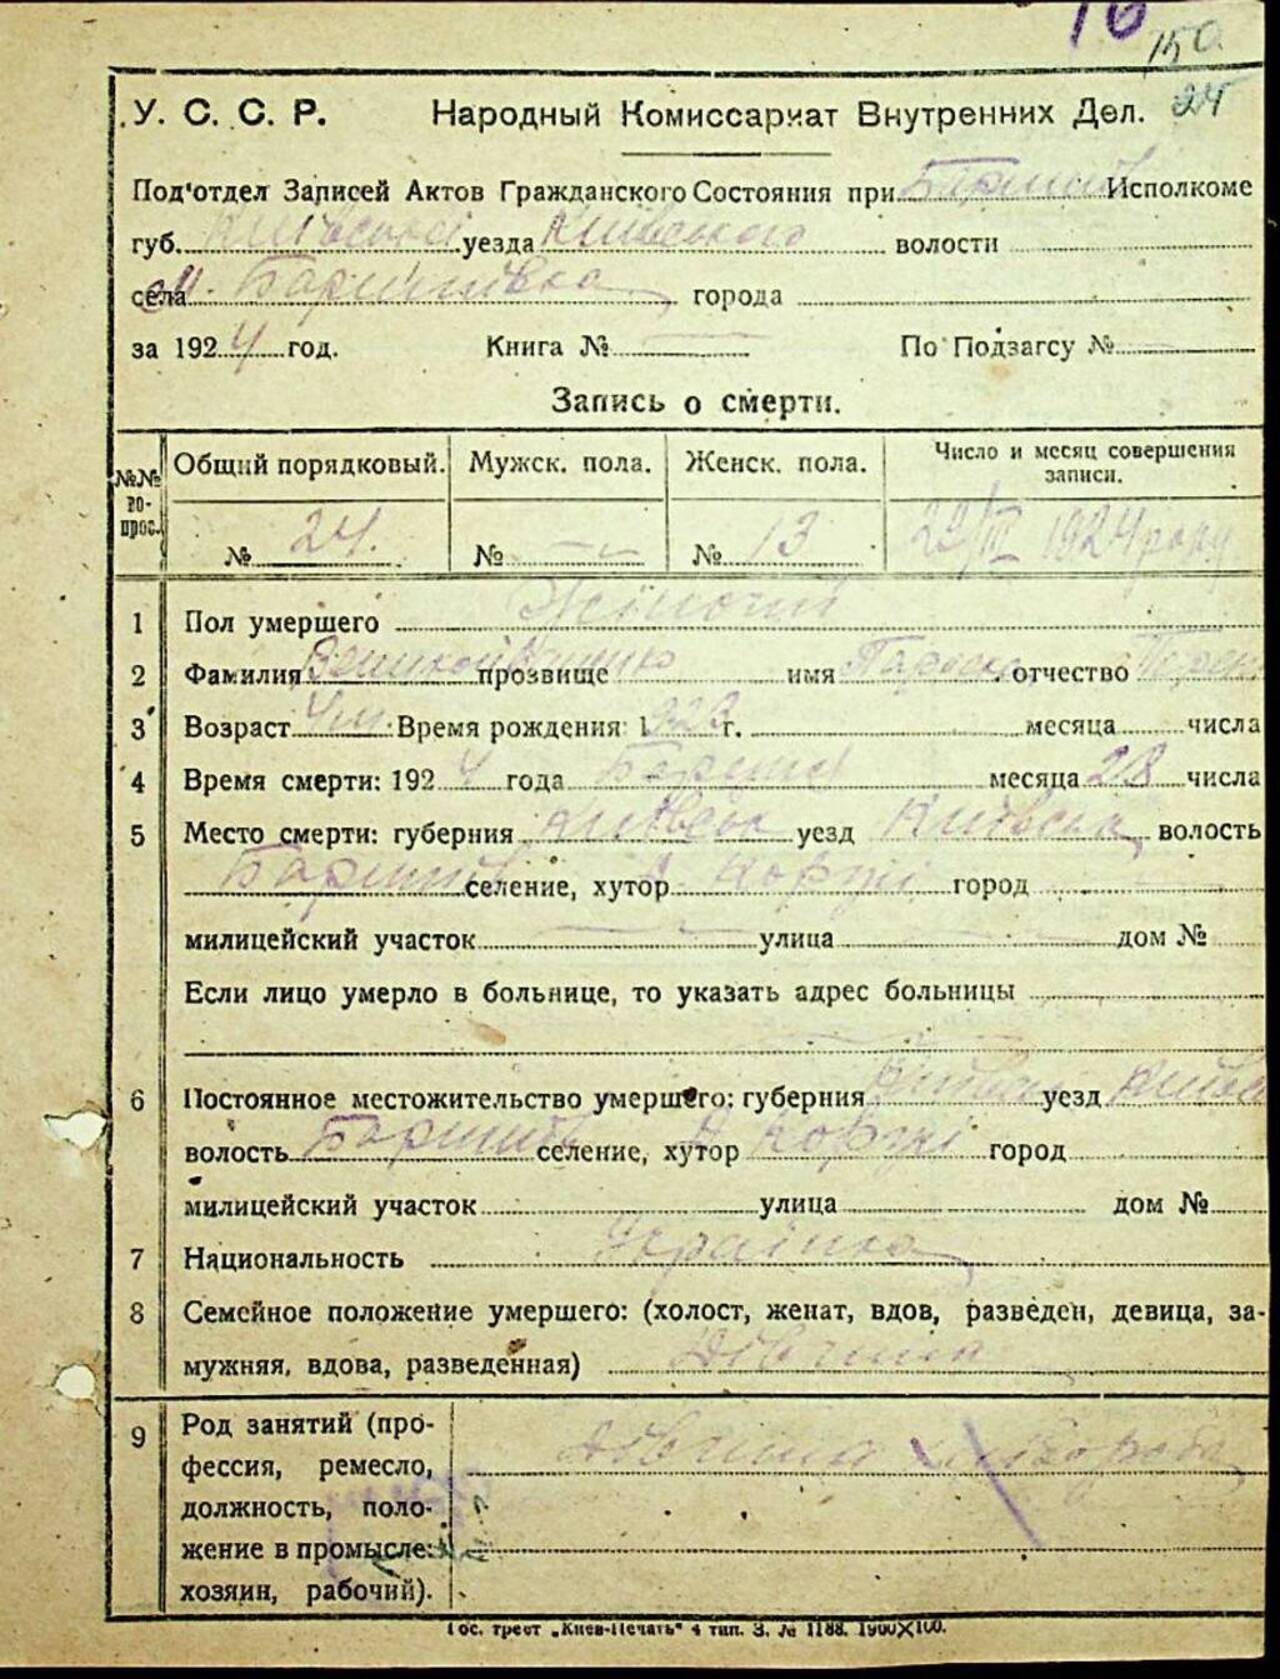 16
150
24
У. С. С. Р. Народный Комиссариат Внутренних Дел.
Под'отдел Записей Актов Гражданского Состояния при Баришів Исполкоме
губ. Київської уезда Київського волости
села м. Баришівка города
за 1924 год. Книга № По Подзагсу №
Запись о смерти.
№№ вопрос. Общий порядковый. Мужск. пола. Женск. пола. Число и месяц совершения записи.
№ 24. № — № 13 29/III 1924 року
1 Пол умершего Жіночий
2 Фамилия прозвище имя Параска отчество
3 Возраст Время рождения: 1923 г. месяца числа
4 Время смерти: 1924 года месяца 28 числа
5 Место смерти: губерния Київськ уезд Київськ волость
Баришів селение, хутор х. Коржі город
милицейский участок улица дом №
Если лицо умерло в больнице, то указать адрес больницы
6 Постоянное местожительство умершего: губерния Київськ уезд Київсь
волость Баришів селение, хутор х Коржі город
милицейский участок улица дом №
7 Национальность Українка
8 Семейное положение умершего: (холост, женат, вдов, разведен, девица, за-
мужняя, вдова, разведенная) Дівчина
9 Род занятий (про-
фессия, ремесло, Дівчина хлібороба
должность, поло-
жение в промысле:
хозяин, рабочий).
Гос. трест „Киев-Печать" 4 тип. З. № 1188. 1900×100.